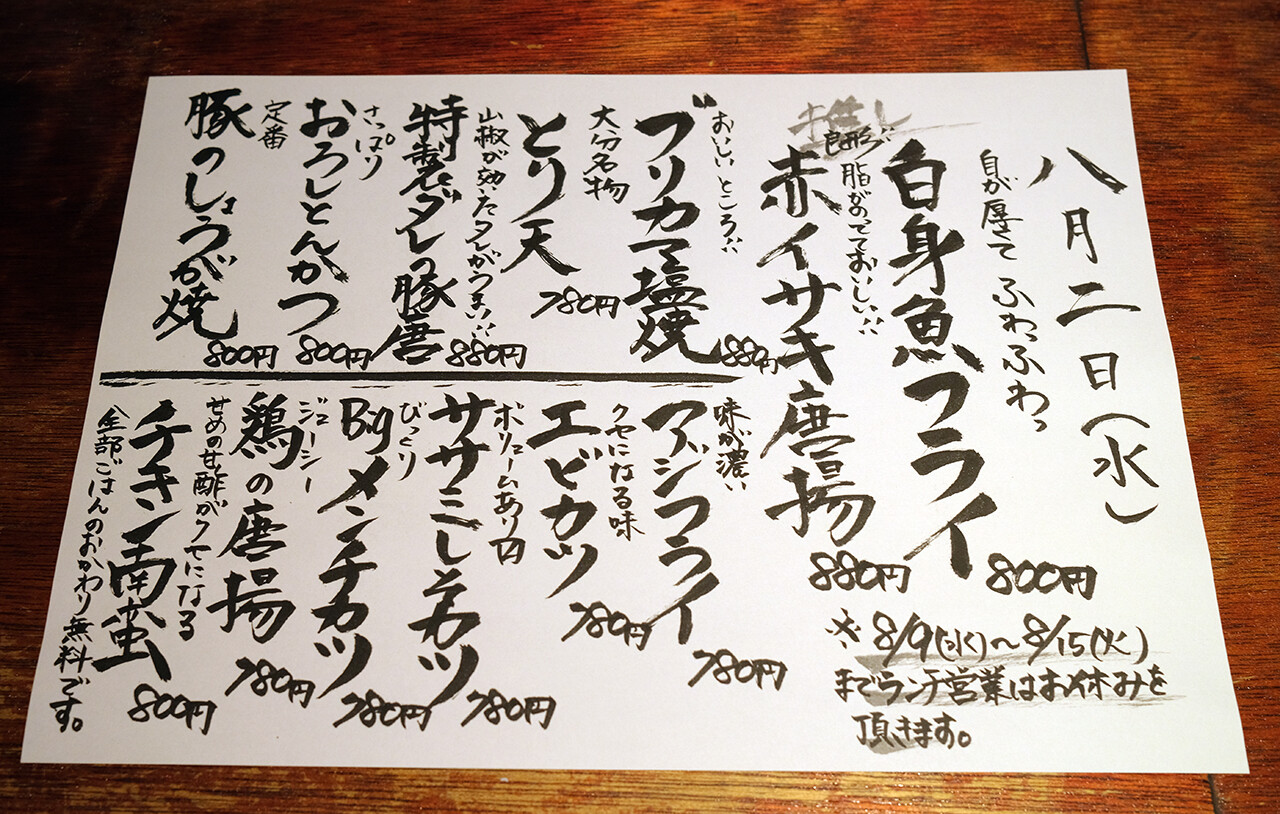 八月二日(水)
身が厚くて ふわっふわっ
白身魚フライ
800円
推し
脂がのってておいしい!!
赤イサキ唐揚
880円
おいしいところ!!
ブリカマ塩焼
880円
大分名物
とり天
780円
山椒が効いたタレがうまい!!
特製ダレの豚唐
880円
さっぱり
おろしとんかつ
800円
定番
豚のしょうが焼
800円
味が濃い
アジフライ
780円
クセになる味
エビカツ
780円
ボリュームあり
ササミしそカツ
780円
びっくり
Bigメンチカツ
780円
ジューシー
鶏の唐揚
780円
甘めの甘酢がクセになる
チキン南蛮
800円
全部ごはんのおかわり無料です。
※8/9(水)〜8/15(火)
までランチ営業はお休みを
頂きます。